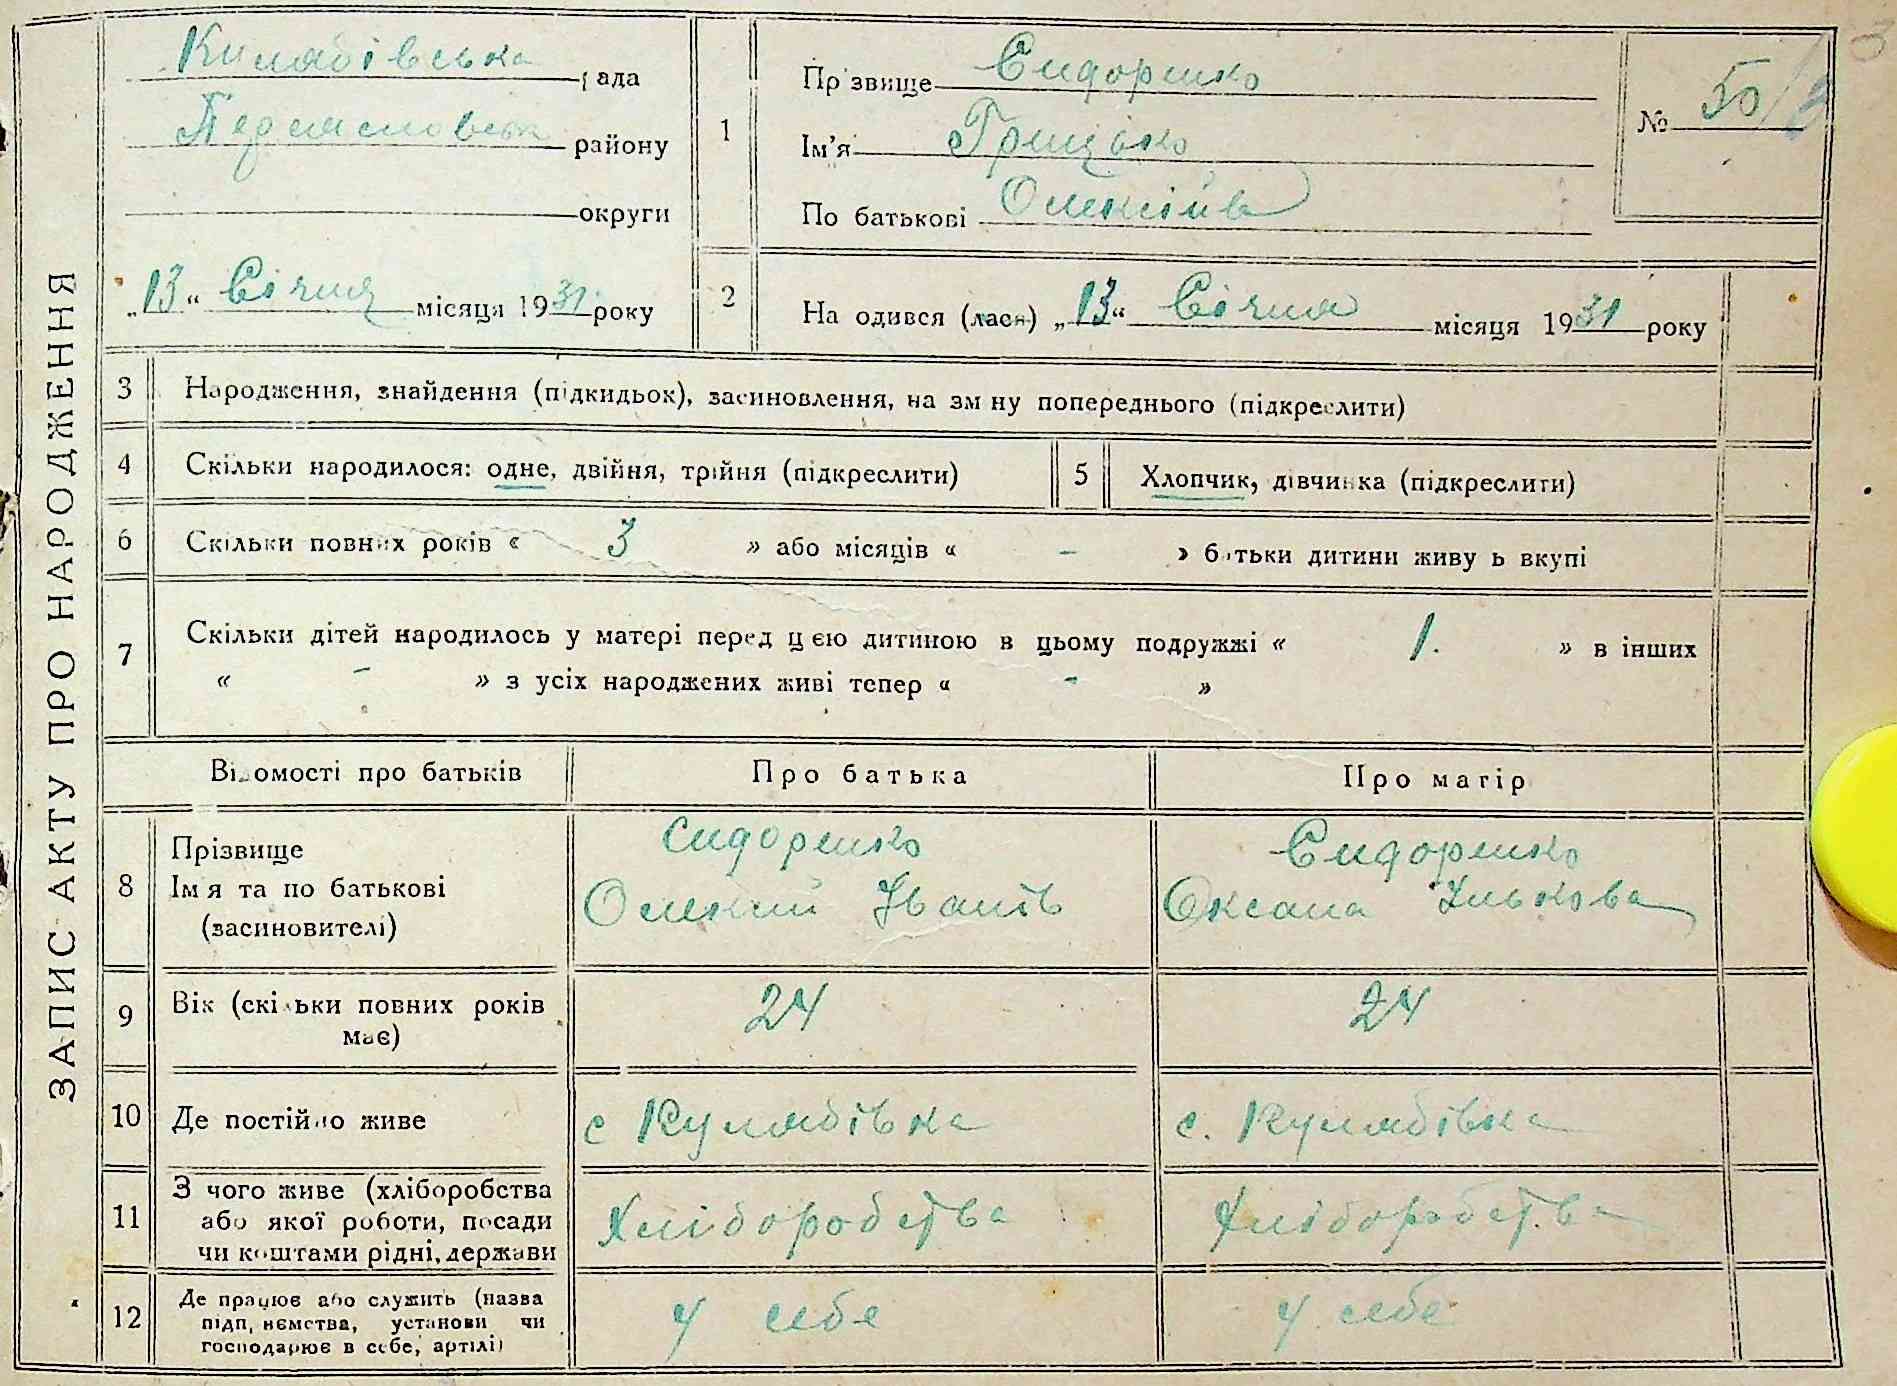 ЗАПИС АКТУ ПРО НАРОДЖЕННЯ
рада
району
округи
„13“ Січня місяця 1931 року
1
Прізвище Сидоренко
Ім'я Грицько
По батькові Олексіїв
№ 50
2
На одився (лася) „13“ Січня місяця 1931 року
3 Народження, знайдення (підкидьок), засиновлення, на зм ну попереднього (підкреслити)
4 Скільки народилося: одне, двійня, трійня (підкреслити)
5 Хлопчик, дівчинка (підкреслити)
6 Скільки повних років « 3 » або місяців « - » батьки дитини живу ь вкупі
7 Скільки дітей народилось у матері перед цією дитиною в цьому подружжі « 1. » в інших
« - » з усіх народжених живі тепер « - »
Відомості про батьків Про батька Про матір
8 Прізвище
Ім я та по батькові
(засиновителі)
Сидоренко
Олексій Іванів
Сидоренко
Оксана Ількова
9 Вік (скільки повних років
має)
24 24
10 Де постійно живе с Кулябівка с. Кулябівка
11 З чого живе (хліборобства
або якої роботи, посади
чи коштами рідні, держави
Хліборобства Хліборобства
12 Де працює або служить (назва
підп, иємства, установи чи
господарює в себе, артілі)
у себе у себе